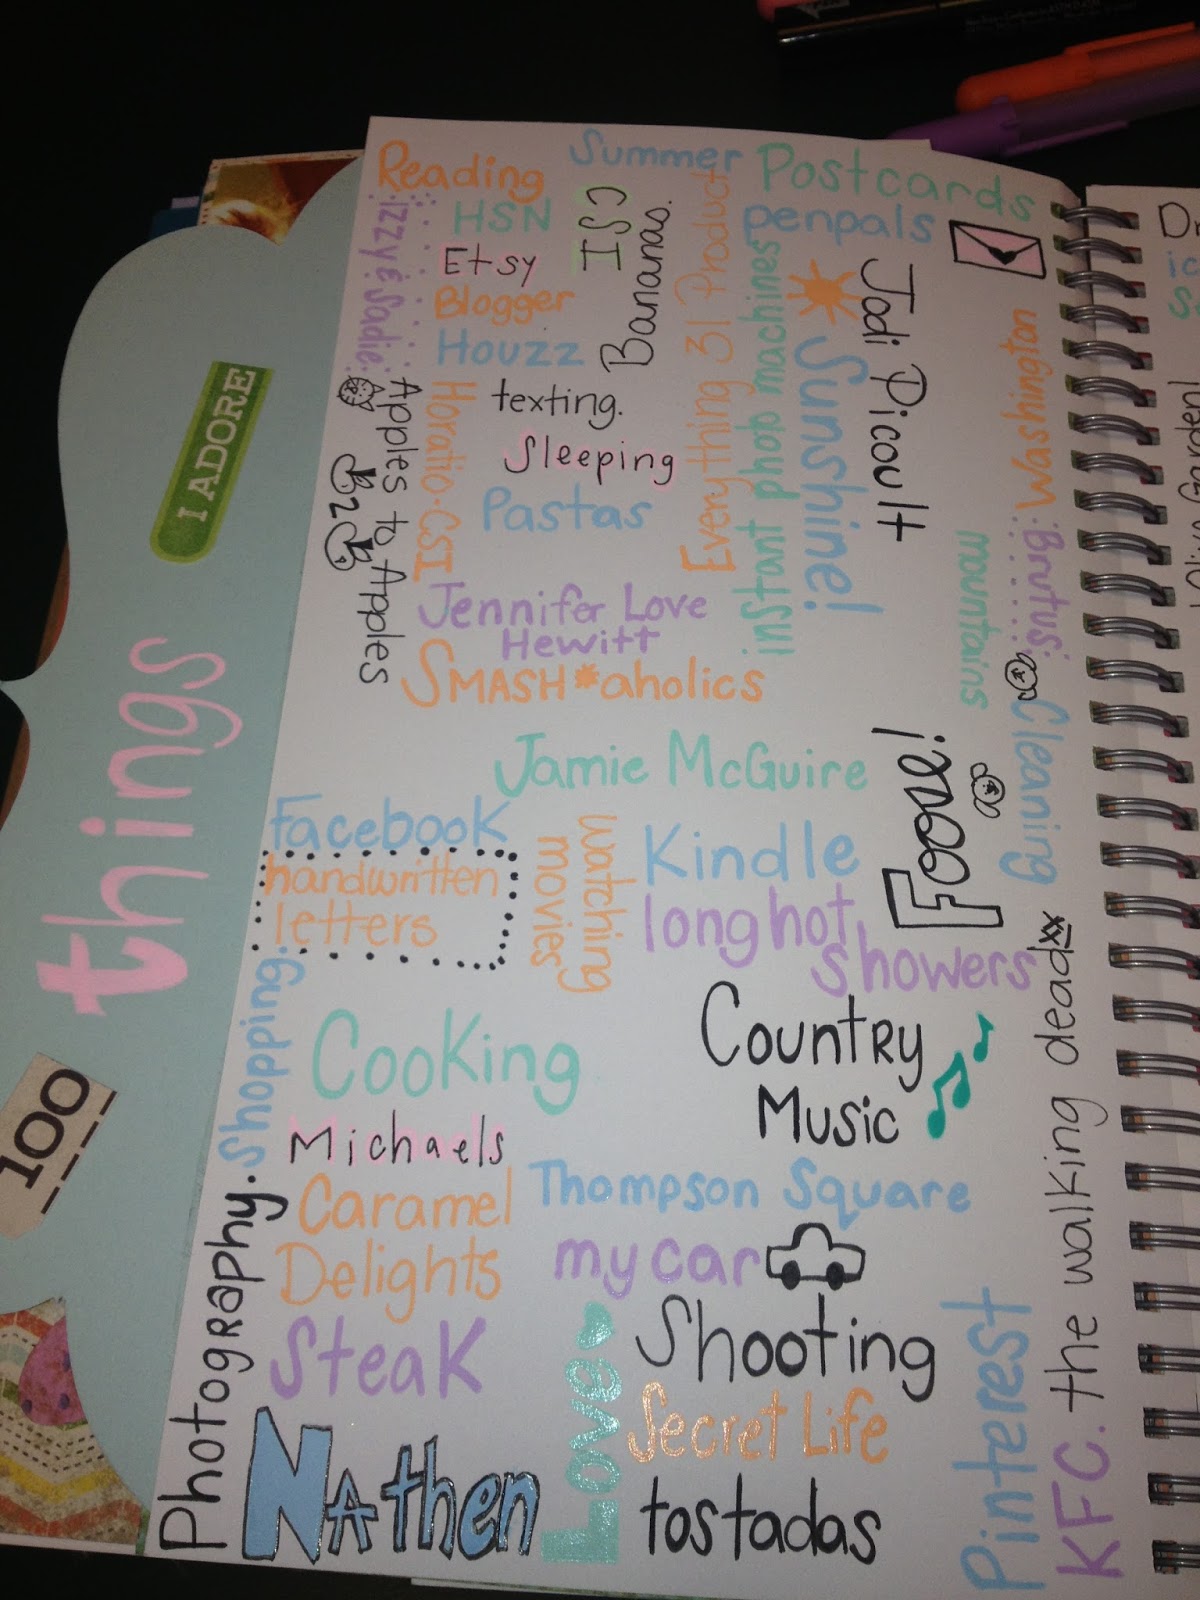 100
things
I ADORE
Reading
Summer
Postcards
penpals
HSN
Etsy
Blogger
Houzz
CSI
Bananas.
.Izzy & Sadie.
Everything 31 Product
instant photo machines
Sunshine!
Jodi Picoult
Washington
Apples to Apples
2
Horatio.CSI
texting.
Sleeping
Pastas
Jennifer Love
Hewitt
SMASH*aholics
mountains
Brutus
Cleaning
Jamie McGuire
Foose!
Facebook
handwritten
letters
watching
movies
Kindle
long hot
showers
Shopping.
Cooking
Country
Music
the walking dead xx
Michaels
Photography.
Caramel
Delights
Thompson Square
my car
Steak
Love
Shooting
Secret Life
Pinterest
KFC.
Nathen
tostadas